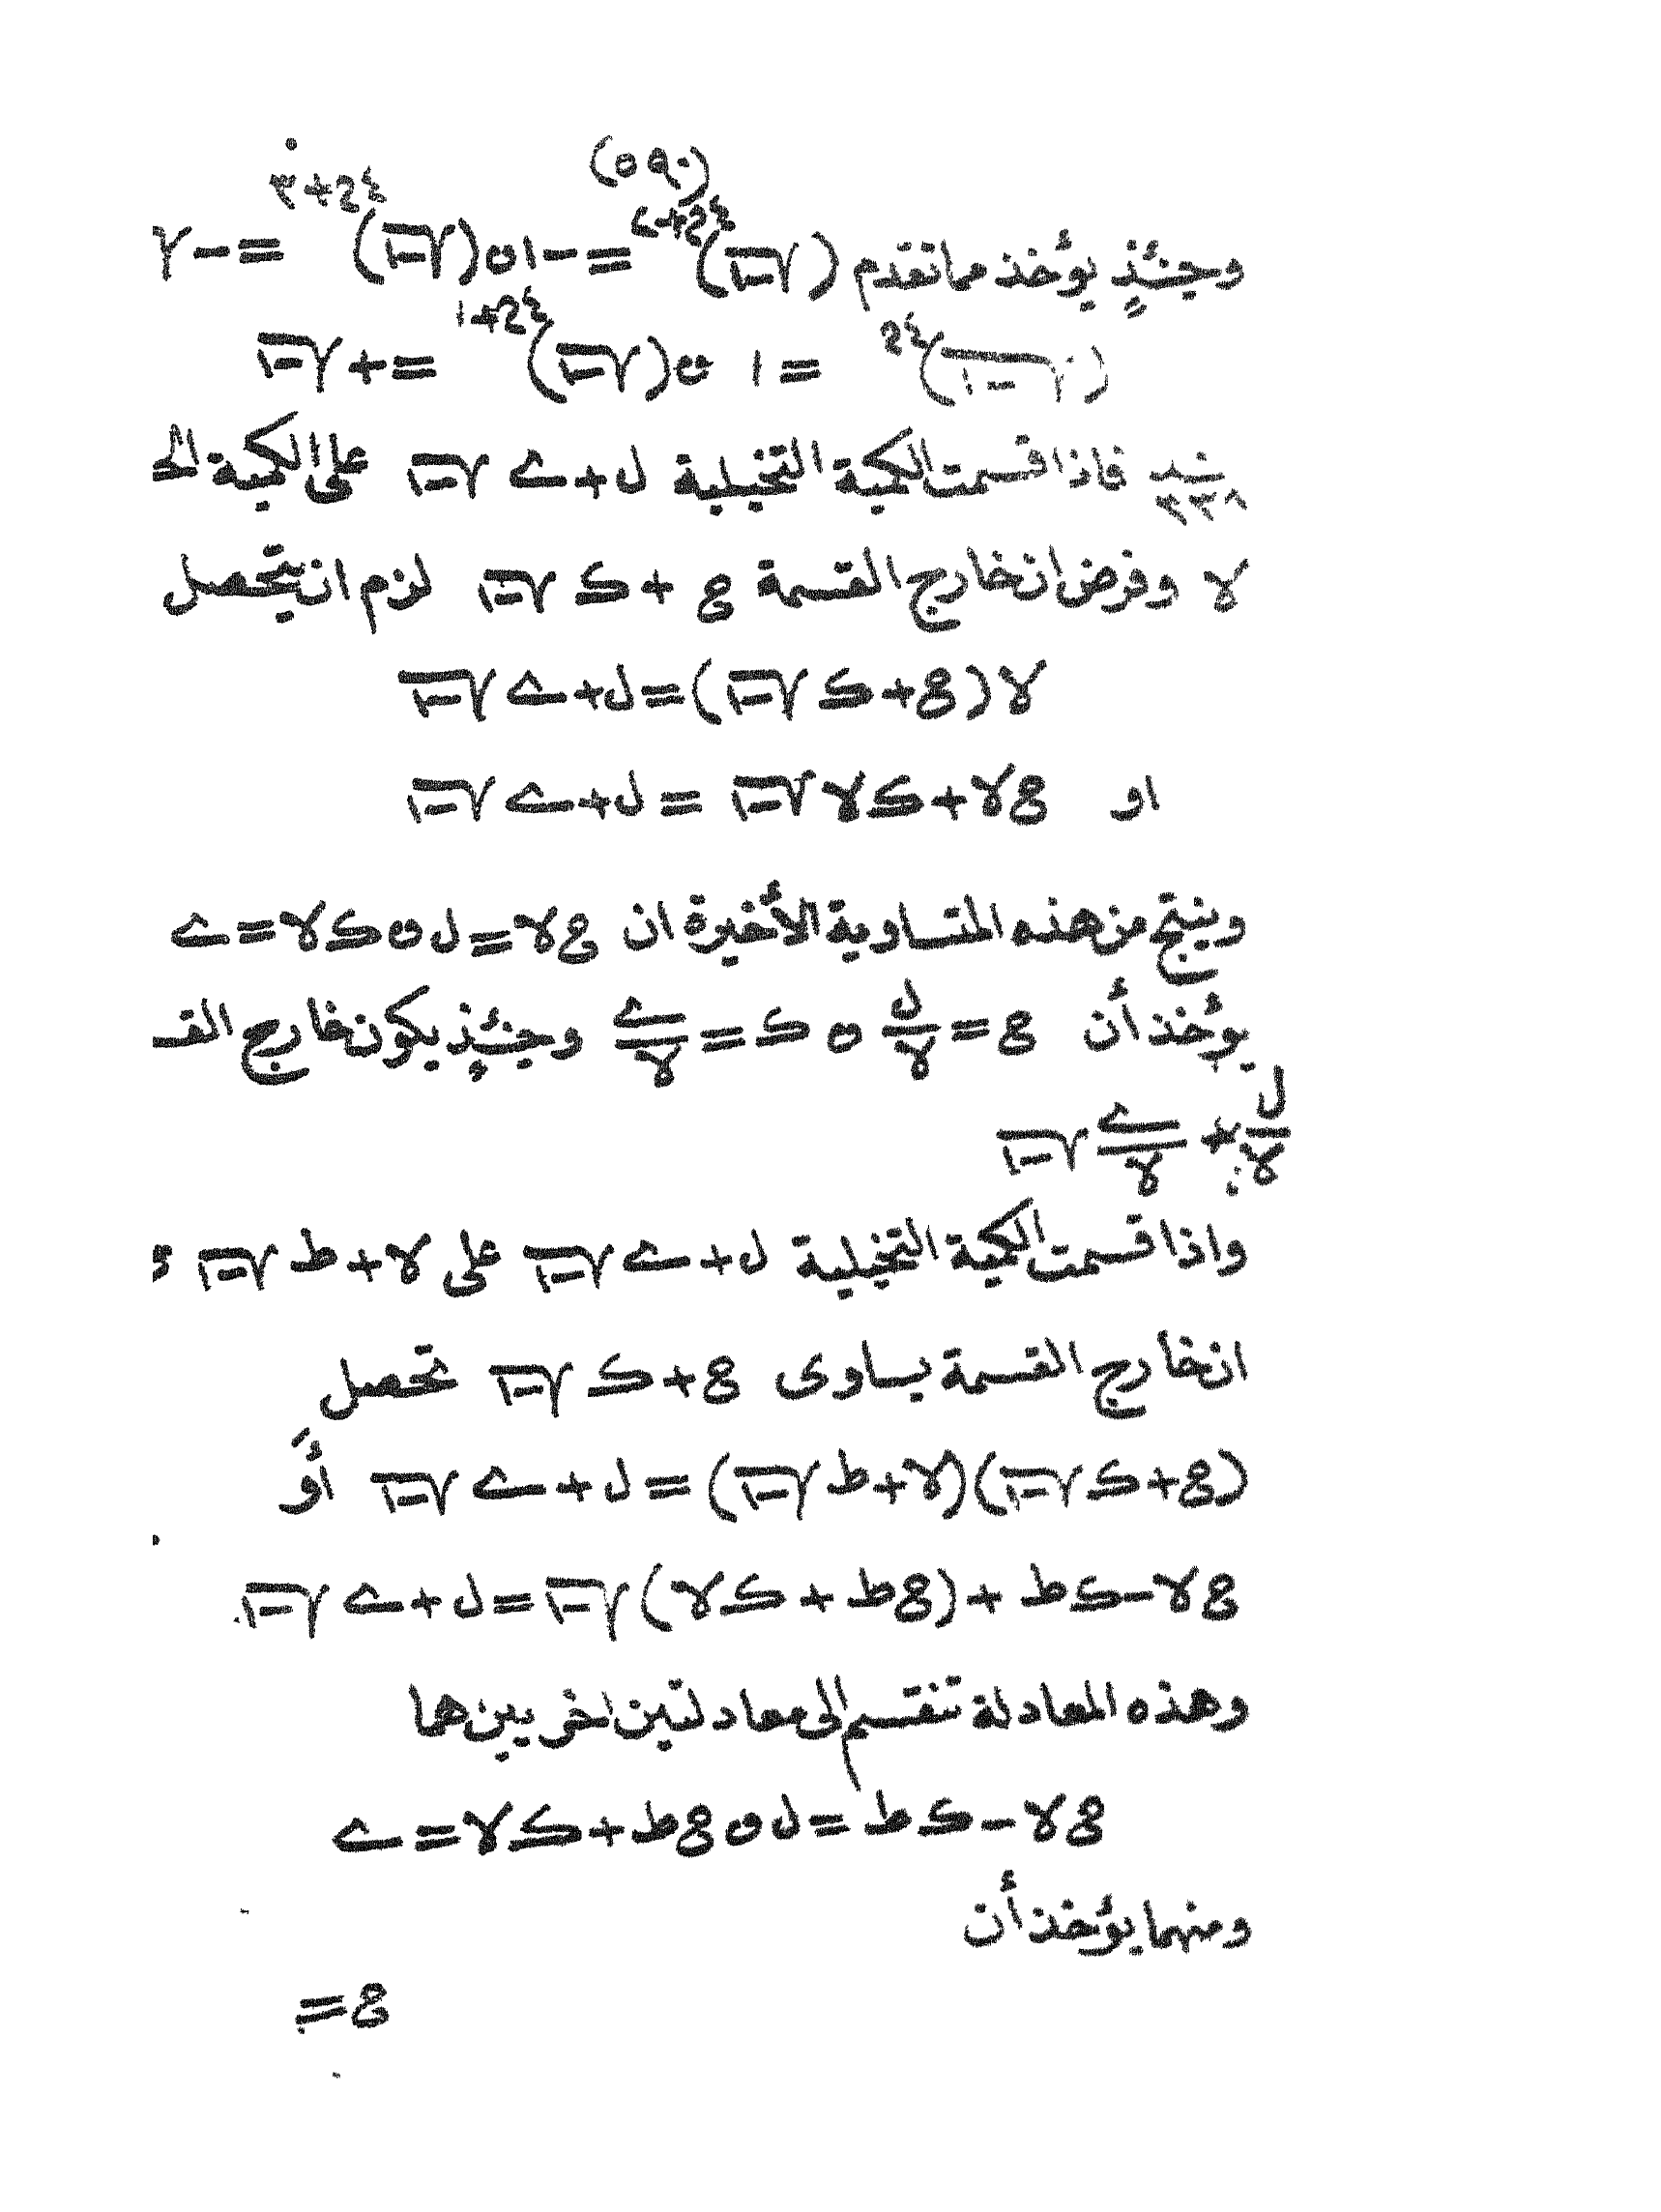 (٥٩٠)
وحينئذٍ يؤخذ مما تقدم (√-١)^(٤م+٢) = -١ و (√-١)^(٤م+٣) = -√
(√-١)^(٤م) = ١ و (√-١)^(٤م+١) = +√-١
بند فاذا قسمت الكمية التخيلية ل + ے √-١ على الكمية الح
٣٣٨
لا وفرض ان خارج القسمة ع + ک √-١ لزم ان يتحصل
لا(ع + ک √-١) = ل + ے √-١
او ع لا + ک لا √-١ = ل + ے √-١
وينتج من هذه المتساوية الأخيرة ان ع لا = ل و ک لا = ے
يؤخذ أن ع = ل/لا و ک = ے/لا وحينئذٍ يكون خارج القسـ
ل/لا + ے/لا √-١
واذا قسمت الكمية التخيلية ل + ے √-١ على لا + ط √-١
ان خارج القسمة يساوى ع + ک √-١ تحصل
(ع + ک √-١)(لا + ط √-١) = ل + ے √-١ أو
ع لا - ک ط + (ع ط + ک لا) √-١ = ل + ے √-١
وهذه المعادلة تنقسم الى معادلتين اخريين هما
ع لا - ک ط = ل و ع ط + ک لا = ے
ومنهما يؤخذ أن
ع =